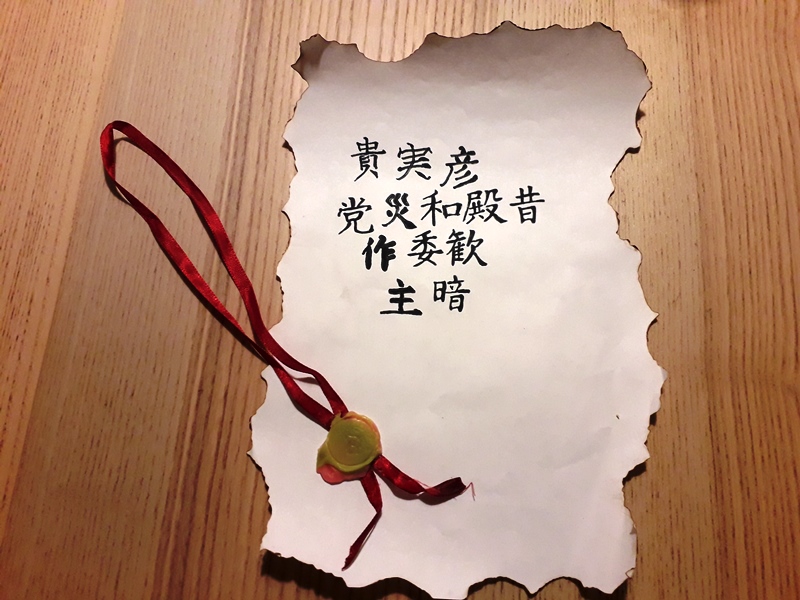 貴実彦
党災和殿昔
作委歓
主暗